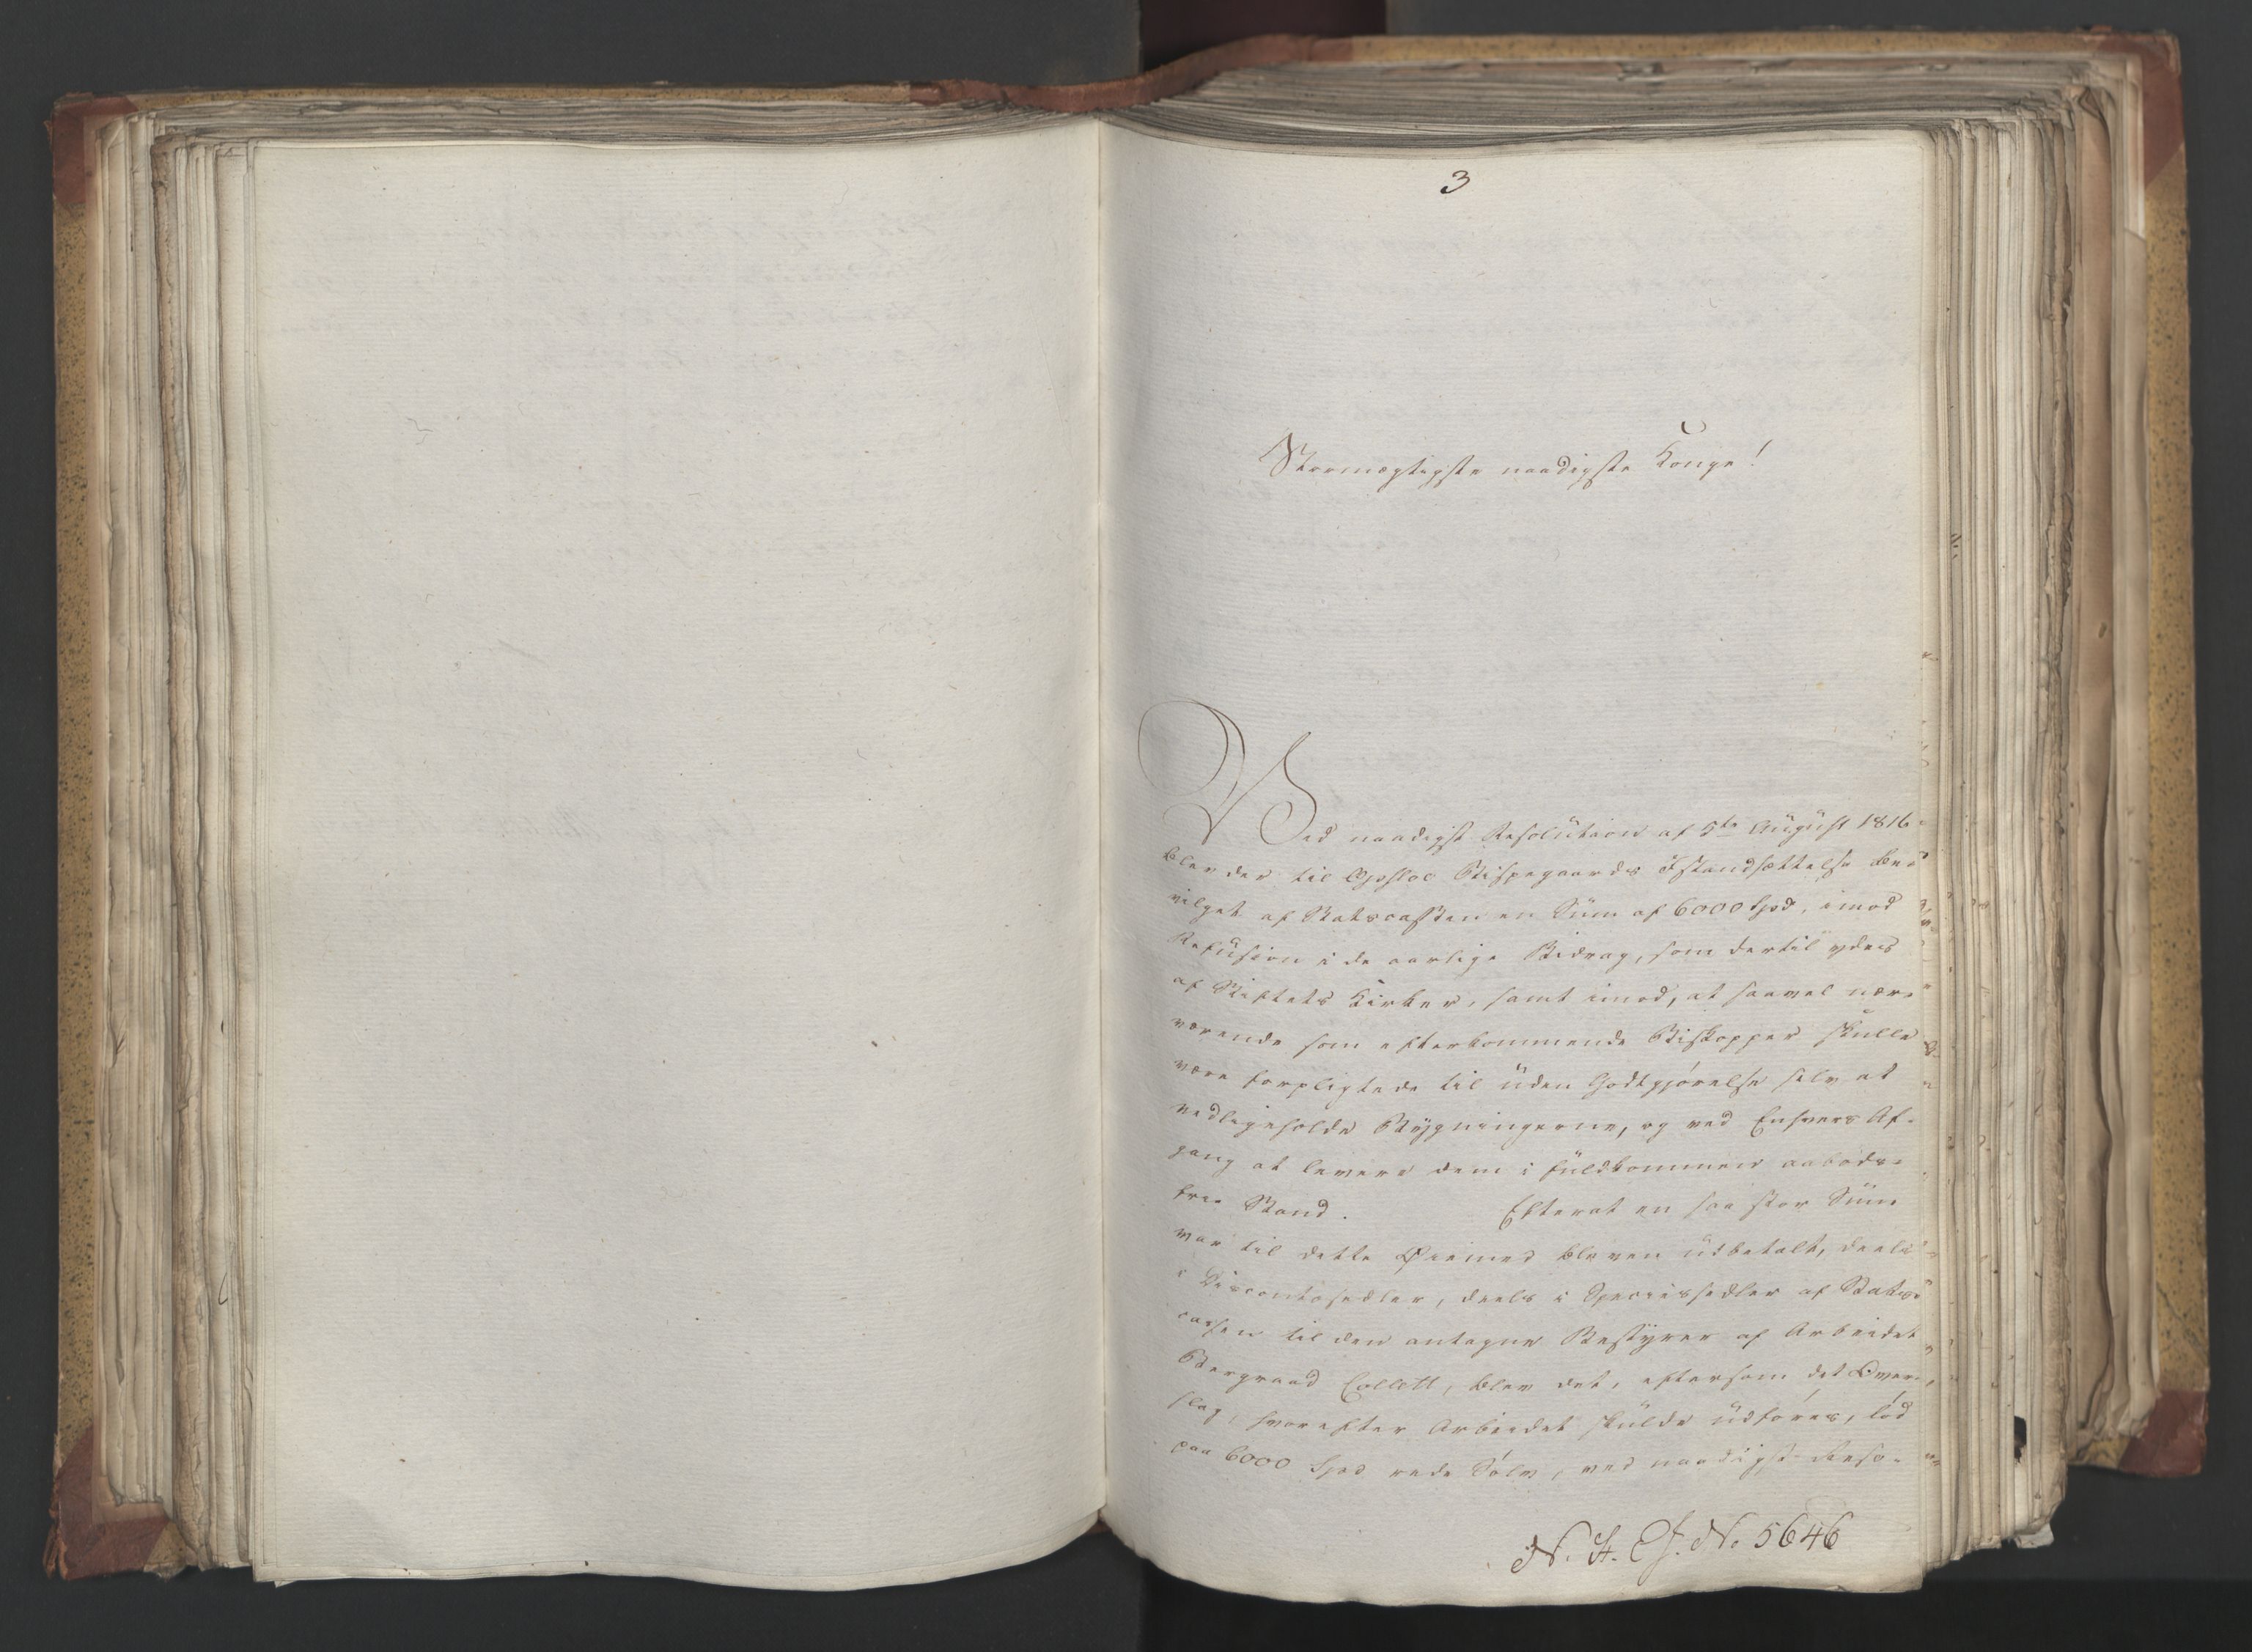 3
Stormægtigste naadigste Konge!
Ved naadigst Resolution af 5te August 1816
blev der til Opsloe Bispegaards Istandsættelse be-
vilget af Statscassen en Sum af 6000 Spd, imod
Refusion i de aarlige Bidrag, som dertil ydes
af Stiftets Kirker, samt imod, at saavel nær-
værende som efterkommende Biskopper skulle
være forpligtede til uden Godtgjørelse selv at
vedligeholde Bygningerne, og ved Enhvers Af-
gang at levere dem i fuldkommen aabods-
frie Stand. Efterat en saa stor Sum
var til dette Øiemed bleven udbetalt, deels
i Discontosedler, deels i Speciessedler af Stats-
cassen til den antagne Bestyrer af Arbeidet
Bergraad Collett, blev det, eftersom det Over-
slag, hvorefter Arbeidet skulde udføres, lød
paa 6000 Spd rede Sølv, ved naadigst Reso-
N. St. Ef. No 5646